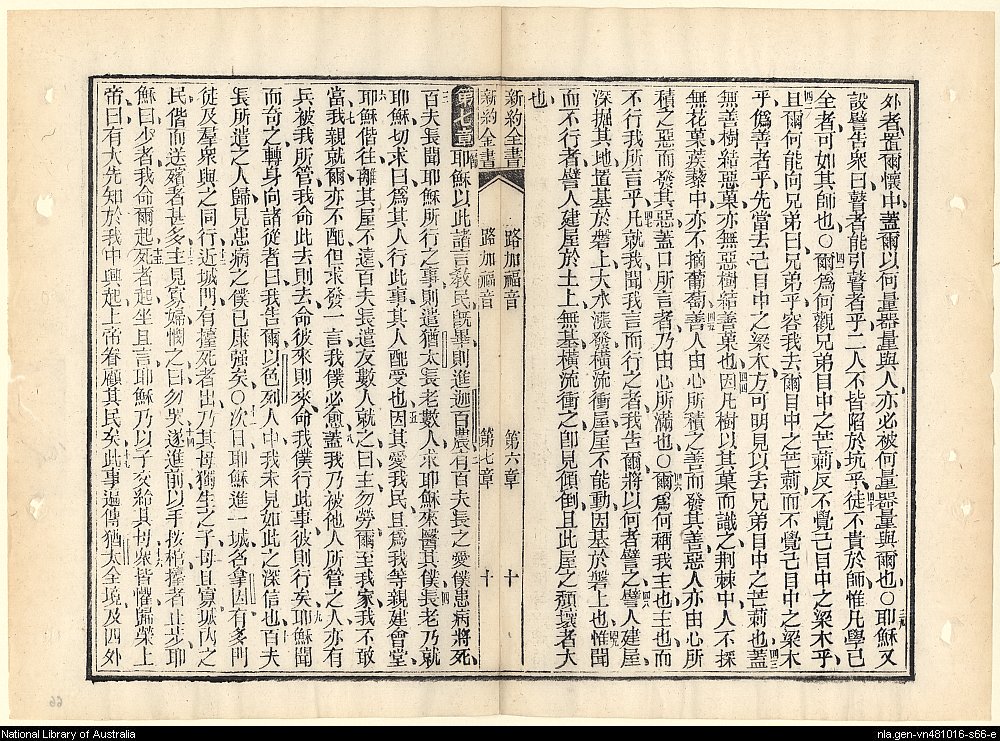 外者置爾懷中蓋爾以何量器量與人亦必被何量器量與爾也○耶穌又
設譬告衆曰瞽者能引瞽者乎二人不皆陷於坑乎徒不貴於師惟凡學已
全者可如其師也○爾爲何觀兄弟目中之芒莿反不覺己目中之梁木乎
且爾何能向兄弟曰兄弟乎容我去爾目中之芒莿而不覺己目中之梁木
乎僞善者乎先當去己目中之梁木方可明見以去兄弟目中之芒莿也蓋
無善樹結惡菓亦無惡樹結善菓也因凡樹以其菓而識之荆棘中人不採
無花菓蒺藜中亦不摘葡萄善人由心所積之善而發其善惡人亦由心所
積之惡而發其惡蓋口所言者乃由心所滿也○爾爲何稱我主也主也而
不行我所言乎凡就我聞我言而行之者我告爾將以何者譬之譬人建屋
深掘其地置基於磐上大水漲發橫流衝屋屋不能動因基於磐上也惟聞
而不行者譬人建屋於土上無基橫流衝之卽見傾倒且此屋之頹壞者大
也
新約全書 路加福音 第六章 十
新約全書 路加福音 第七章 十
第七章 耶穌以此諸言教民旣畢則進迦百農有百夫長之愛僕患病將死
百夫長聞耶穌所行之事則遣猶太長老數人求耶穌來醫其僕長老乃就
耶穌切求曰爲其人行此事其人配受也因其愛我民且爲我等親建會堂
耶穌偕往離其屋不遠百夫長遣友數人就之曰主勿勞爾至我家我不敢
當我親就爾亦不配但求發一言我僕必愈蓋我乃被他人所管之人亦有
兵被我所管我命此去則去命彼來則來命我僕行此事彼則行矣耶穌聞
而奇之轉身向諸從者曰我告爾以色列人中我未見如此之深信也百夫
長所遣之人歸見患病之僕已康强矣○次日耶穌進一城名拿因有多門
徒及羣衆與之同行近城門有擡死者出乃其母獨生之子母且寡城內之
民偕而送殯者甚多主見寡婦憫之曰勿哭遂進前以手按棺擡者止步耶
穌曰少者我命爾起死者起坐且言耶穌乃以子交給其母衆皆懼歸榮上
帝曰有大先知於我中興起上帝眷顧其民矣此事遍傳猶太全境及四外
66
National Library of Australia
nla.gen-vn481016-s66-e